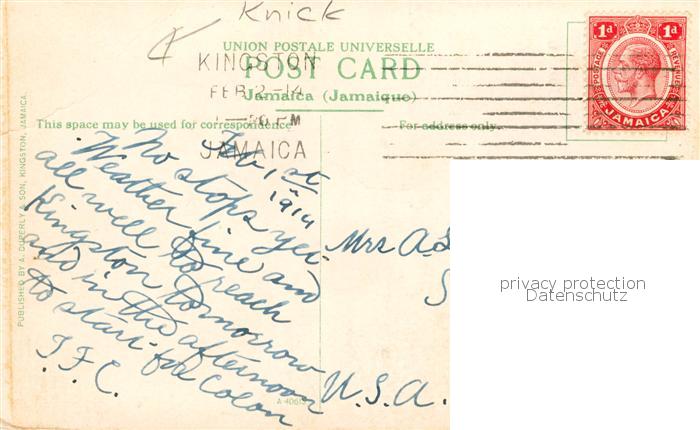 Knick
UNION POSTALE UNIVERSELLE
POST CARD
Jamaica (Jamaique)
KINGSTON
FEB 2-14
JAMAICA
1d 1d
POSTAGE & REVENUE
JAMAICA
This space may be used for correspondence
For address only.
PUBLISHED BY A. DUPERLY & SON, KINGSTON, JAMAICA.
Feb, 1st
1914
No stops yet
Weather fine and
all well to reach
Kingston tomorrow
and in the afternoon
to start for Colon
J. F. C.
Mrs A.
S
U.S.A.
A 40613
privacy protection
Datenschutz